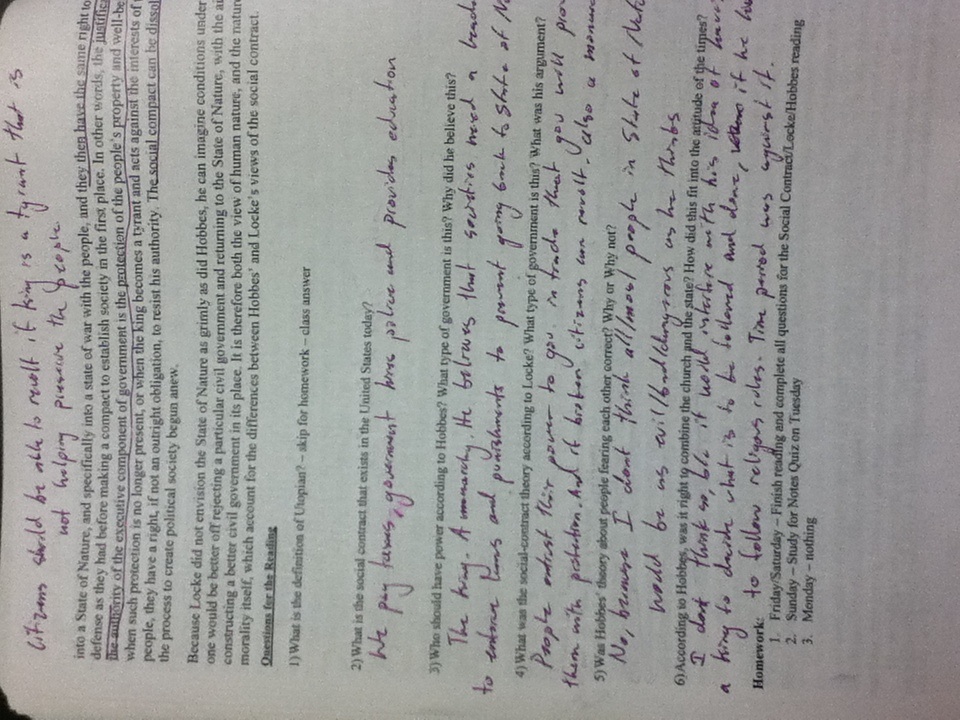 Citizens should be able to revolt if king is a tyrant that is
not helping preserve the people
into a State of Nature, and specifically into a state of war with the people, and they then have the same right to
defense as they had before making a compact to establish society in the first place. In other words, the justifica
the authority of the executive component of government is the protection of the people's property and well-be
when such protection is no longer present, or when the king becomes a tyrant and acts against the interests of
people, they have a right, if not an outright obligation, to resist his authority. The social compact can be dissol
the process to create political society begun anew.
Because Locke did not envision the State of Nature as grimly as did Hobbes, he can imagine conditions under
one would be better off rejecting a particular civil government and returning to the State of Nature, with the ai
constructing a better civil government in its place. It is therefore both the view of human nature, and the nature
morality itself, which account for the differences between Hobbes' and Locke's views of the social contract.
Questions for the Reading
1) What is the definition of Utopian? – skip for homework – class answer
2) What is the social contract that exists in the United States today?
We pay taxes, government hires police and provides education
3) Who should have power according to Hobbes? What type of government is this? Why did he believe this?
The king. A monarchy. He believes that societies need a leade
to enforce laws and punishments to prevent going back to State of Na
4) What was the social-contract theory according to Locke? What type of government is this? What was his argument?
People entrust their power to gov. in trade that gov will pro
them with protection. And if broken citizens can revolt. also a monarc
5) Was Hobbes' theory about people fearing each other correct? Why or Why not?
No, because I dont think all/most people in State of Natu
would be as evil/bad/dangerous as he thinks
6) According to Hobbes, was it right to combine the church and the state? How did this fit into the attitude of the times?
I dont think so, b/c it would interfere with his idea of havi
a king to decide what is to be followed and done, if he ha
to follow religous rules. Time period was against it.
Homework:
1. Friday/Saturday – Finish reading and complete all questions for the Social Contract/Locke/Hobbes reading
2. Sunday – Study for Notes Quiz on Tuesday
3. Monday – nothing